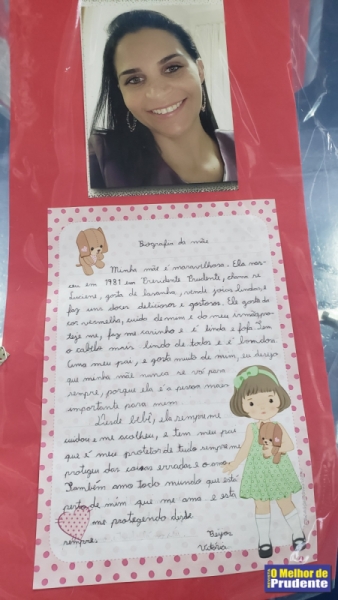 Biografia da mãe
Minha mãe é maravilhosa. Ela nas-
ceu em 1981 em Presidente Prudente, chama-se
Luciene, gosta de lasanha, vende joias lindas e
faz uns doces deliciosos e gostosos. Ela gosta da
cor vermelha, cuida de mim e do meu irmão, pro-
tege-me, faz-me carinho e é linda e fofa. Tem
o cabelo mais lindo de todos e é bondosa.
Ama meu pai, e gosta muito de mim, eu desejo
que minha mãe nunca se vá para
sempre, porque ela é a pessoa mais
importante para mim.
Desde bebê, ela sempre me
cuidou e me acolheu, e tem meu pai
que é meu protetor de tudo sempre me
protegeu das coisas erradas e o amo.
Também amo todo mundo que está
perto de mim que me ama e está
me protegendo desde
sempre.
Beijos
Vitória
O Melhor de
Prudente